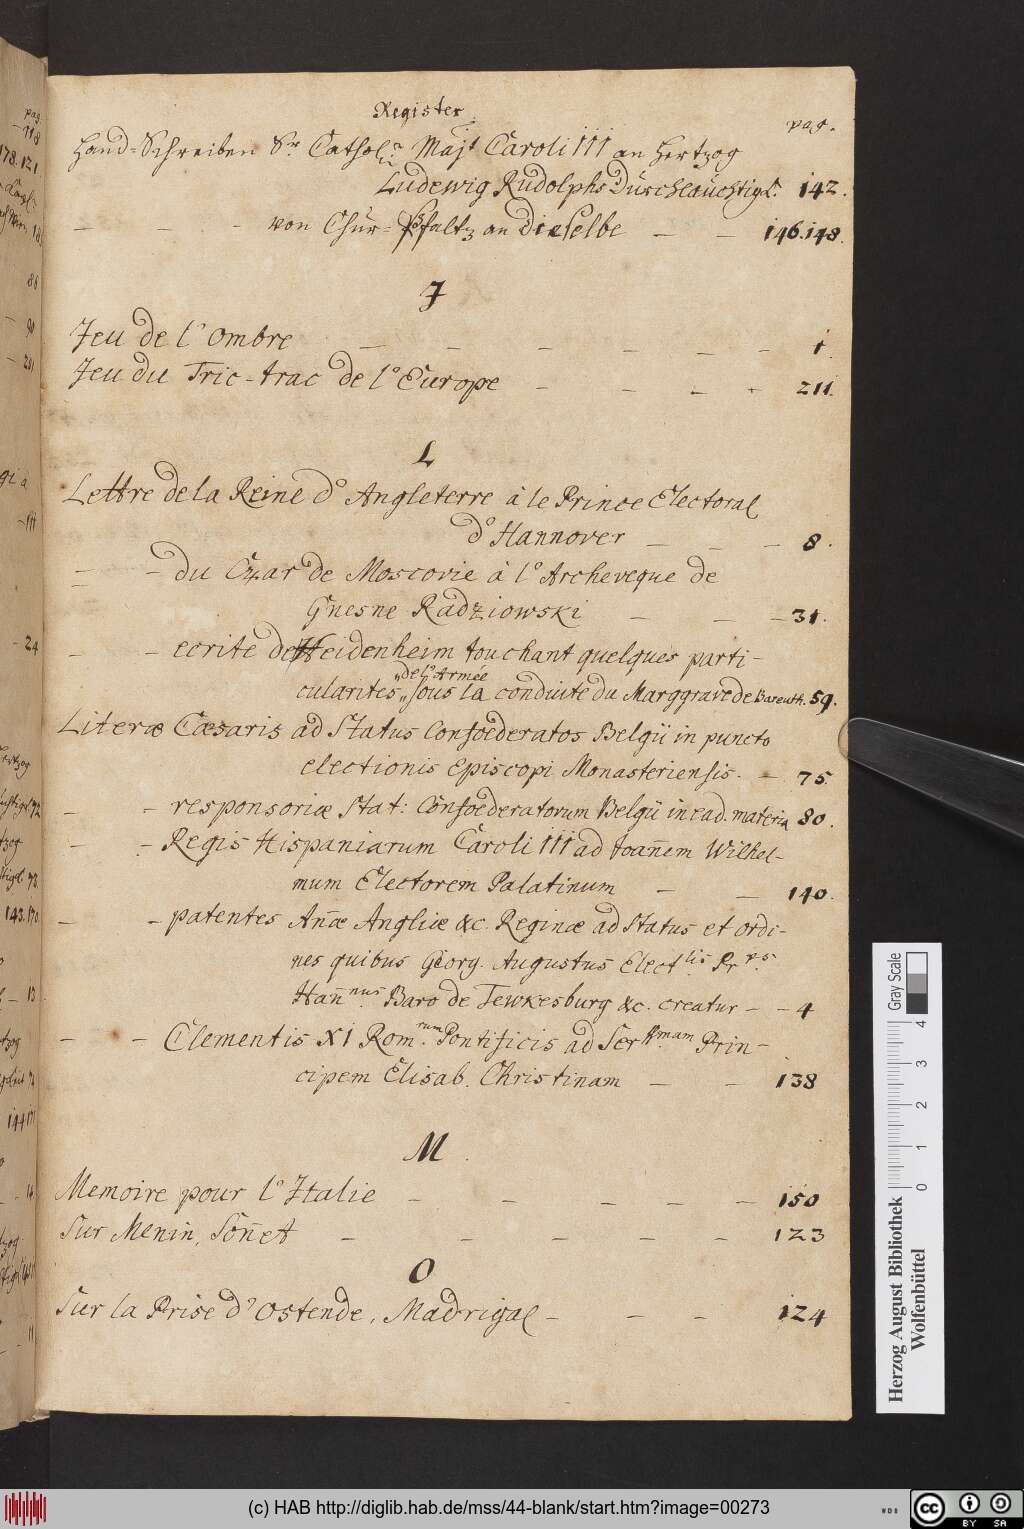 Register
pag.
Hand-Schreiben Sr. Cathol: Majt Caroli III an Hertzog
Ludewig Rudolphs Durchlauchtigk. 142.
- - - von Chur-Pfaltz an Dieselbe - - 146.148.
J
Jeu de l'Ombre - - - - - - 1.
Jeu du Tric-trac de l'Europe - - - - 211.
L
Lettre de la Reine d'Angleterre à le Prince Electoral
d'Hannover - - - 8.
- - du Czar de Moscovie à l'Archeveque de
Gnesne Radziowski - - - 31.
- - ecrite de Heidenheim touchant quelques parti-
de l'Armée
cularites sous la conduite du Marggrave de Bareuth. 59.
Literæ Cæsaris ad Status Confoederatos Belgii in puncto
electionis Episcopi Monasteriensis. - 75
- - responsoriæ Stat: Confoederatorum Belgii in ead. materia 80.
- - Regis Hispaniarum Caroli III ad Joan̄em Wilhel-
mum Electorem Palatinum - - 140.
- - patentes An̄æ Angliæ &c. Reginæ ad Status et ordi-
nes quibus Georg. Augustus Elect.lis Pr.ps
Han̄.nus Baro de Tewkesburg &c. creatur - - 4
- - Clementis XI Rom.rum Pontificis ad Ser.mam Prin-
cipem Elisab. Christinam - - 138
M.
Memoire pour l'Italie - - - - - 150
Sur Menin, Son̄et - - - - - 123
O
Sur la Prise d'Ostende, Madrigal - - - 124
Gray Scale
0 1 2 3 4
Herzog August Bibliothek
Wolfenbüttel
(c) HAB http://diglib.hab.de/mss/44-blank/start.htm?image=00273
WDB
CC BY SA